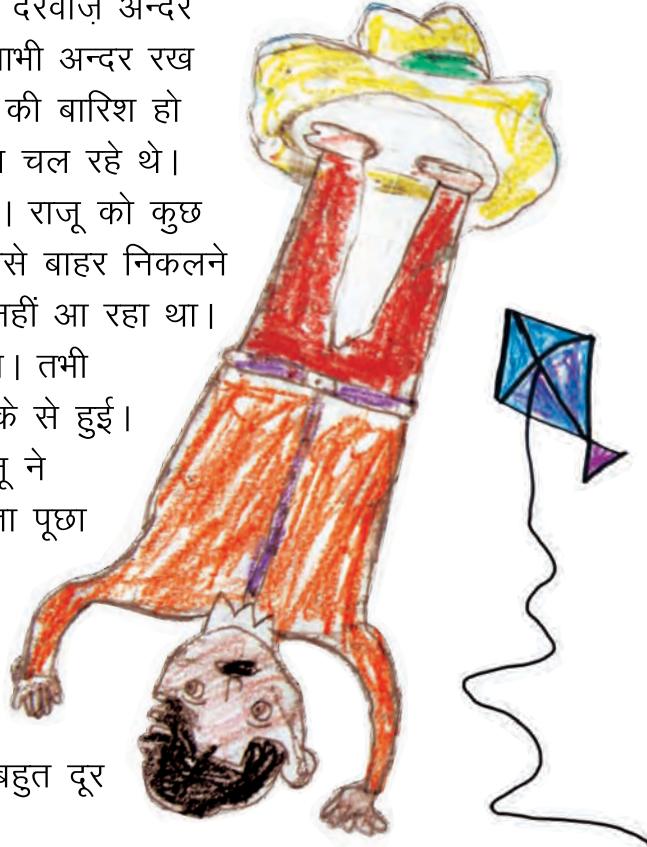 दरवाज़े अन्दर
अन्दर रख
की बारिश हो
चल रहे थे।
। राजू को कुछ
से बाहर निकलने
नहीं आ रहा था।
। तभी
से हुई।
ने
पूछा
बहुत दूर